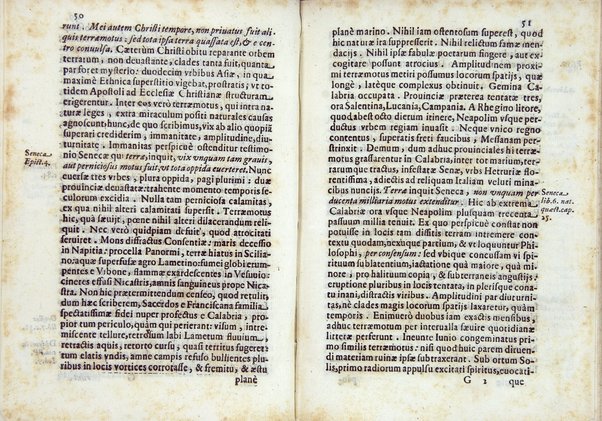 50
runt. Mei autem Christi tempore, non priuatus fuit ali-
quis terræmotus: sed tota ipsa terra quassata est, & e cen-
tro conuulsa. Cæterùm Christi obitu reparante orbem
terrarum, non deuastante, clades tanta fuit, quanta
par foret mysterio: duodecim vrbibus Asiæ, in qua
maximè Ethnica superstitio vigebat, prostratis; vt to-
tidem Apostoli ad Ecclesiæ Christianæ structuram
erigerentur. Inter eos verò terræmotus, qui intra natu-
ræ leges, extra miraculum positi naturales causas
agnoscunt hunc, de quo scribimus, vix ab alio quopiã
superati crediderim, immanitate, amplitudine, diu-
turnitate. Immanitas perspicuè ostenditur testimo-
nio Senecæ qui terra, inquit, vix vnquam tam grauit,
aut perniciosus motus fuit, vt tota oppida euerteret. Nunc
euersæ tres vrbes, plura oppida, pagi plurimi: duæ
prouinciæ deuastatæ: trahente momento temporis se-
culorum excidia. Nulla tam perniciosa calamitas,
ex qua nihil alteri calamitati supersit. Terræmotus
hic, quà sæuijt, penè nihil alteri dilacerandum reli-
quit. Nec verò quidpiam defuit, quod atrocitati
seruiret. Mons diffractus Consentiæ: maris decessio
in Napitia: procella Panormi, terræ hiatus in Scilia-
no: aquæ superfusæ agro Lametino: fumei globi erum-
pentes e Vibone, flammæ exardescentes in Vesuuio:
cineres effusi Nicastri, amnis sanguineus prope Nica-
stra. Non hic prætermittendum censeo, quod retulit,
dum hæc scriberem, Sacerdos e Franciscana familia
spectatissimæ fidei nuper profectus e Calabria, pro-
pior tum periculo, quàm qui perierant: visum, intre-
miscente tellure, retrorsum labi Lametum fluuium,
retractis aquis, retorto cursu, quasi territus fugeret:
tum elatis vndis, amne campis refuso bullientes plu-
ribus in locis vortices corrotasse, & fremitu, & æstu
planè
Seneca
Epist.4.
51
planè marino. Nihil iam ostentosum superest, quod
hic natura ita suppresserit. Nihil relictum famæ men-
dacijs. Nihil ipsæ poetarum fingere, aut ex-
cogitare possunt atrocius. Amplitudinem proxi-
mi terræmotus metiri possumus locorum spatijs, quæ
longè, latèque complexus obtinuit. Gemina Cal-
labria occupata. Prouinciæ præterea tentatæ tres,
ora Salentina, Lucania, Campania. A Rhegino litore,
quod abest octo dierum itinere, Neapolim vsque per-
ductus vrbem regiam inuasit. Neque vnico regno
contentus, superatis freti faucibus, Messanam per-
strinxit. Demum, dum adhuc prouinciales hi terræ-
motus grassarentur in Calabria, inter tot marium, ter-
rarumque tractus, infestatæ Senæ, vrbs Hetruriæ flo-
rentissima, adiectis ad reliquam Italiam veluti mina-
cibus nuncijs. Terræ inquit Seneca, non vnquam per
ducenta milliaria motus extenditur. Hic ab extrema
Calabriæ ora vsque Neapolim plusquam trecenta
passuum millia tenuit. Ex quo perspicuè constat non
potuisse in locis tam dissitis terram intremere con-
textu quodam, nexuque partium, & vt loquuntur Phi-
losophi, per consensum: sed vbique concussam vi spi-
rituum subiatentium, iactatione quà maiore, quà mi-
nore, pro halituum copia, & subterraneis angustijs:
eruptione pluribus in locis tentata, in plerisque cona-
tu inani, distractis viribus. Amplitudini par diuturni-
tas, nè clades magis locorum spatijs laxaretur, quàm
temporis. Enimuerò duobus iam exactis mensibus,
adhuc terræmotum per interualla sæuire quotidianæ
litteræ perferunt. Ineunte Iunio congeminatus pri-
mo similis terræmotus: nisi quod huic parem diruen-
di materiam ruinæ ipsæ subtraxerant. Sub ortum So-
lis, primo radiorum appulsu excitati spiritus, euocati-
G 2 que
Seneca
lib.6.nat.
quæst.cap.
25.